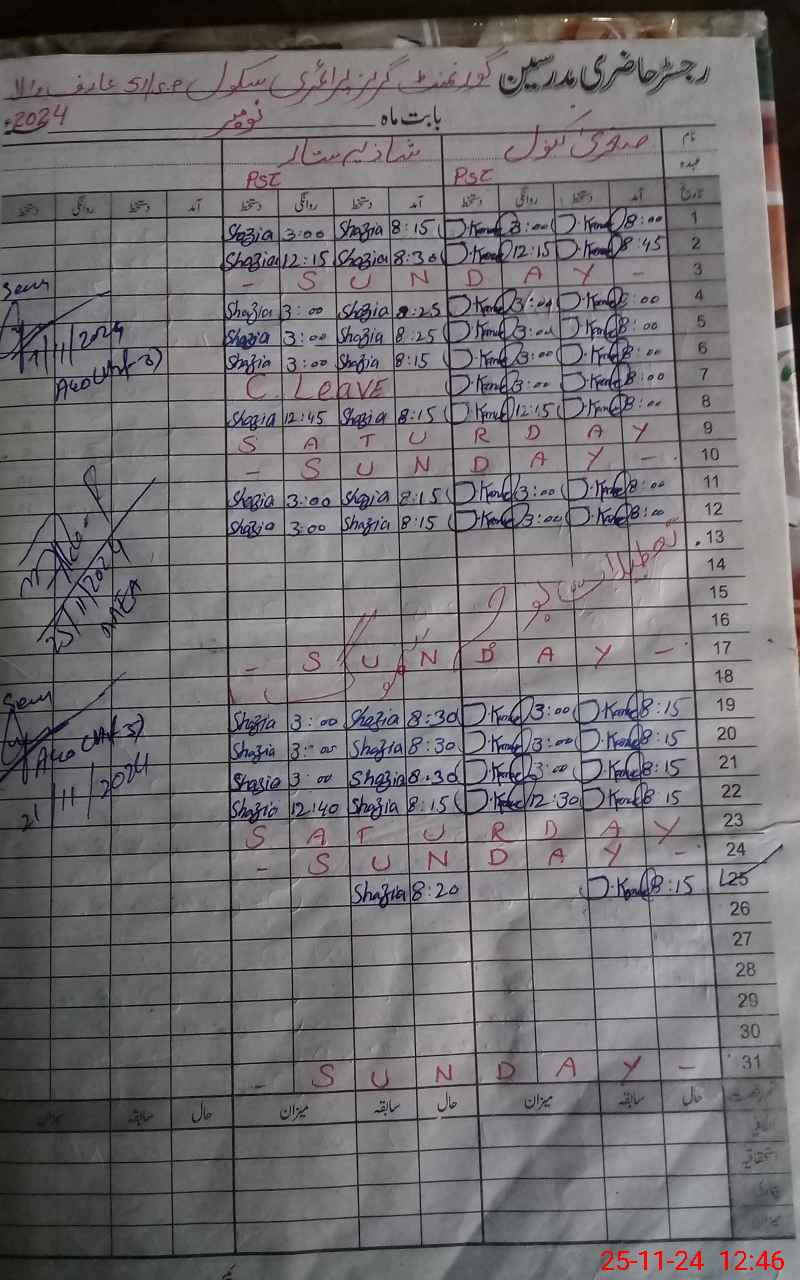 رجسٹر حاضری مدرسین گورنمنٹ گرلز پرائمری سکول 51/S.P عارف والا
بابت ماہ نومبر 2024
نام صغریٰ کنول شاذیہ ستار
عہدہ PST PST
تاریخ آمد دستخط روانگی دستخط آمد دستخط روانگی دستخط آمد دستخط روانگی دستخط
1 8:00 3:00 8:15 Shazia 3:00 Shazia
2 8:45 12:15 8:30 Shazia 12:15 Shazia
3 - S U N D A Y -
4 8:00 3:00 8:25 Shazia 3:00 Shazia
5 8:00 3:00 8:25 Shazia 3:00 Shazia
6 8:00 3:00 8:15 Shazia 3:00 Shazia
7 8:00 3:00 C. Leave
8 8:00 12:15 8:15 Shazia 12:45 Shazia
9 S A T U R D A Y
10 - S U N D A Y -
11 8:00 3:00 8:15 Shazia 3:00 Shazia
12 8:00 3:00 8:15 Shazia 3:00 Shazia
13
14
15
16
17 - S U N D A Y -
18
19 8:15 3:00 8:30 Shazia 3:00 Shazia
20 8:15 3:00 8:30 Shazia 3:00 Shazia
21 8:15 3:00 8:30 Shazia 3:00 Shazia
22 8:15 12:30 8:15 Shazia 12:40 Shazia
23 S A T U R D A Y
24 - S U N D A Y -
25 8:15 8:20 Shazia
26
27
28
29
30
31 - S U N D A Y -
حال سابقہ میزان حال سابقہ میزان حال سابقہ میزان
اتفاقیہ
استحقاقیہ
بیماری
میزان
Seen
11/2024
25/11/2024
Seen
21/11/2024
25-11-24 12:46